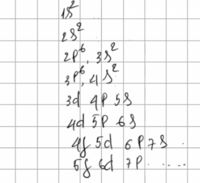 1s²
2s²
2p⁶, 3s²
3p⁶, 4s²
3d 4p 5s
4d 5p 6s
4f 5d 6p 7s
5f 6d 7p .....